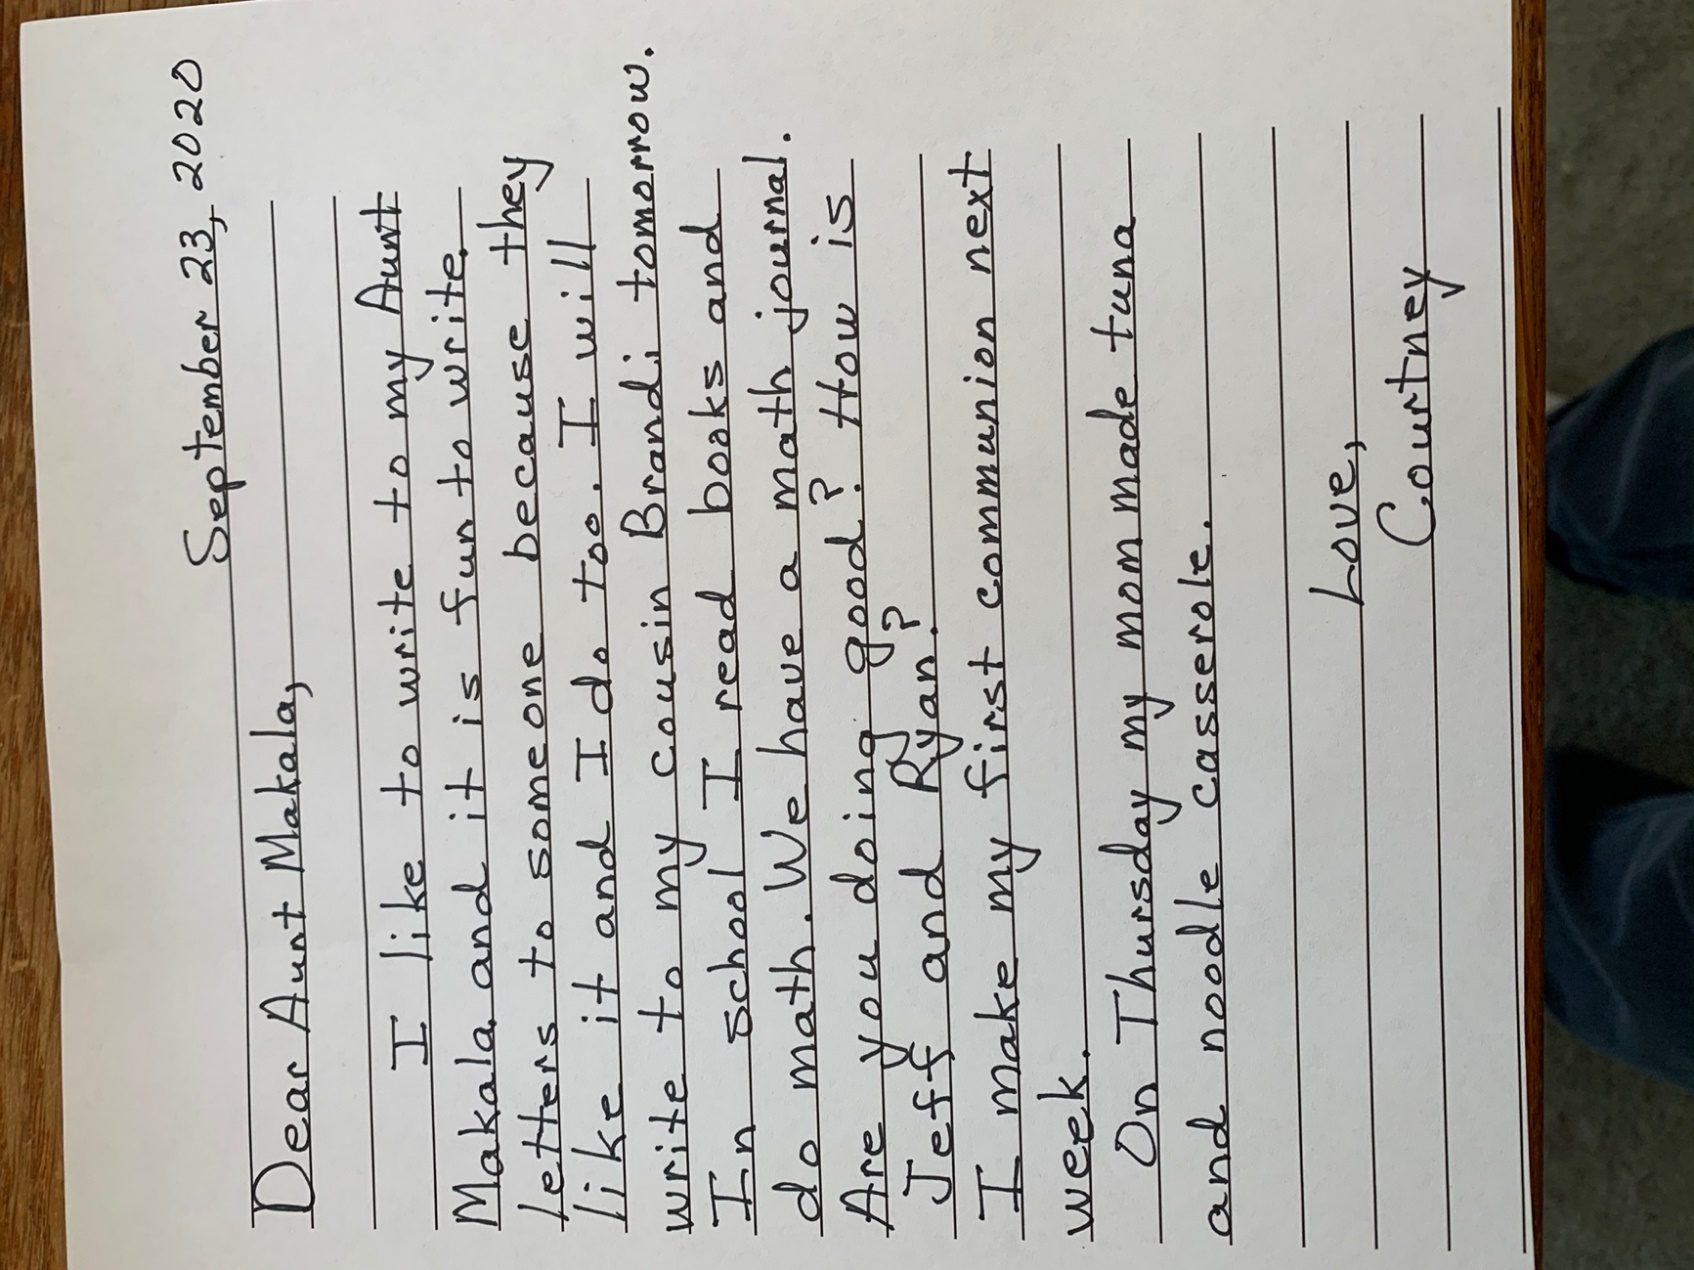 September 23, 2020
Dear Aunt Makala,
I like to write to my Aunt
Makala and it is fun to write
letters to someone because they
like it and I do too. I will
write to my cousin Brandi tomorrow.
In school I read books and
do math. We have a math journal.
Are you doing good? How is
Jeff and Ryan?
I make my first communion next
week.
On Thursday my mom made tuna
and noodle casserole.
Love,
Courtney